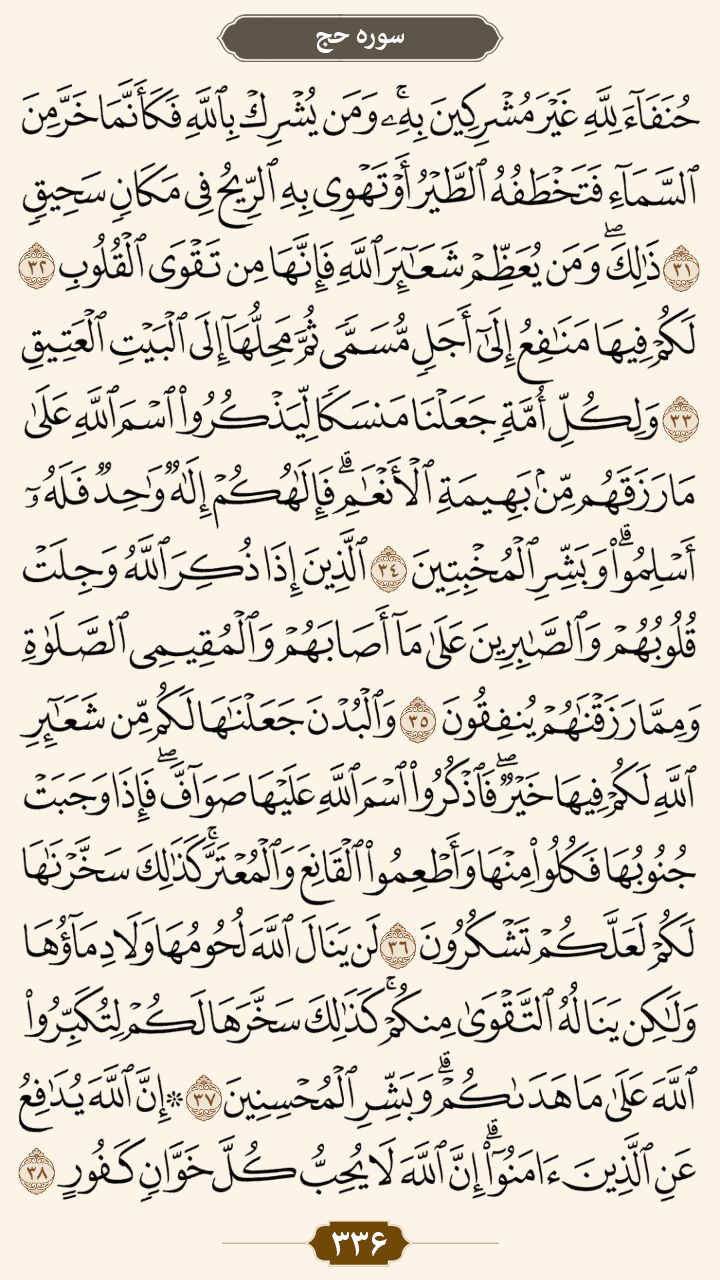 سوره حج
حُنَفَآءَ لِلَّهِ غَيۡرَ مُشۡرِكِينَ بِهِۦۚ وَمَن يُشۡرِكۡ بِٱللَّهِ فَكَأَنَّمَا خَرَّ مِنَ
ٱلسَّمَآءِ فَتَخۡطَفُهُ ٱلطَّيۡرُ أَوۡ تَهۡوِي بِهِ ٱلرِّيحُ فِي مَكَانٖ سَحِيقٖ
٣١ ذَٰلِكَۖ وَمَن يُعَظِّمۡ شَعَٰٓئِرَ ٱللَّهِ فَإِنَّهَا مِن تَقۡوَى ٱلۡقُلُوبِ ٣٢
لَكُمۡ فِيهَا مَنَٰفِعُ إِلَىٰٓ أَجَلٖ مُّسَمّٗى ثُمَّ مَحِلُّهَآ إِلَى ٱلۡبَيۡتِ ٱلۡعَتِيقِ
٣٣ وَلِكُلِّ أُمَّةٖ جَعَلۡنَا مَنسَكٗا لِّيَذۡكُرُواْ ٱسۡمَ ٱللَّهِ عَلَىٰ
مَا رَزَقَهُم مِّنۢ بَهِيمَةِ ٱلۡأَنۡعَٰمِۗ فَإِلَٰهُكُمۡ إِلَٰهٞ وَٰحِدٞ فَلَهُۥٓ
أَسۡلِمُواْۗ وَبَشِّرِ ٱلۡمُخۡبِتِينَ ٣٤ ٱلَّذِينَ إِذَا ذُكِرَ ٱللَّهُ وَجِلَتۡ
قُلُوبُهُمۡ وَٱلصَّٰبِرِينَ عَلَىٰ مَآ أَصَابَهُمۡ وَٱلۡمُقِيمِي ٱلصَّلَوٰةِ
وَمِمَّا رَزَقۡنَٰهُمۡ يُنفِقُونَ ٣٥ وَٱلۡبُدۡنَ جَعَلۡنَٰهَا لَكُم مِّن شَعَٰٓئِرِ
ٱللَّهِ لَكُمۡ فِيهَا خَيۡرٞۖ فَٱذۡكُرُواْ ٱسۡمَ ٱللَّهِ عَلَيۡهَا صَوَآفَّۖ فَإِذَا وَجَبَتۡ
جُنُوبُهَا فَكُلُواْ مِنۡهَا وَأَطۡعِمُواْ ٱلۡقَانِعَ وَٱلۡمُعۡتَرَّۚ كَذَٰلِكَ سَخَّرۡنَٰهَا
لَكُمۡ لَعَلَّكُمۡ تَشۡكُرُونَ ٣٦ لَن يَنَالَ ٱللَّهَ لُحُومُهَا وَلَا دِمَآؤُهَا
وَلَٰكِن يَنَالُهُ ٱلتَّقۡوَىٰ مِنكُمۡۚ كَذَٰلِكَ سَخَّرَهَا لَكُمۡ لِتُكَبِّرُواْ
ٱللَّهَ عَلَىٰ مَا هَدَىٰكُمۡۗ وَبَشِّرِ ٱلۡمُحۡسِنِينَ ٣٧ ۞إِنَّ ٱللَّهَ يُدَٰفِعُ
عَنِ ٱلَّذِينَ ءَامَنُوٓاْۗ إِنَّ ٱللَّهَ لَا يُحِبُّ كُلَّ خَوَّانٖ كَفُورٍ ٣٨
۳۳۶